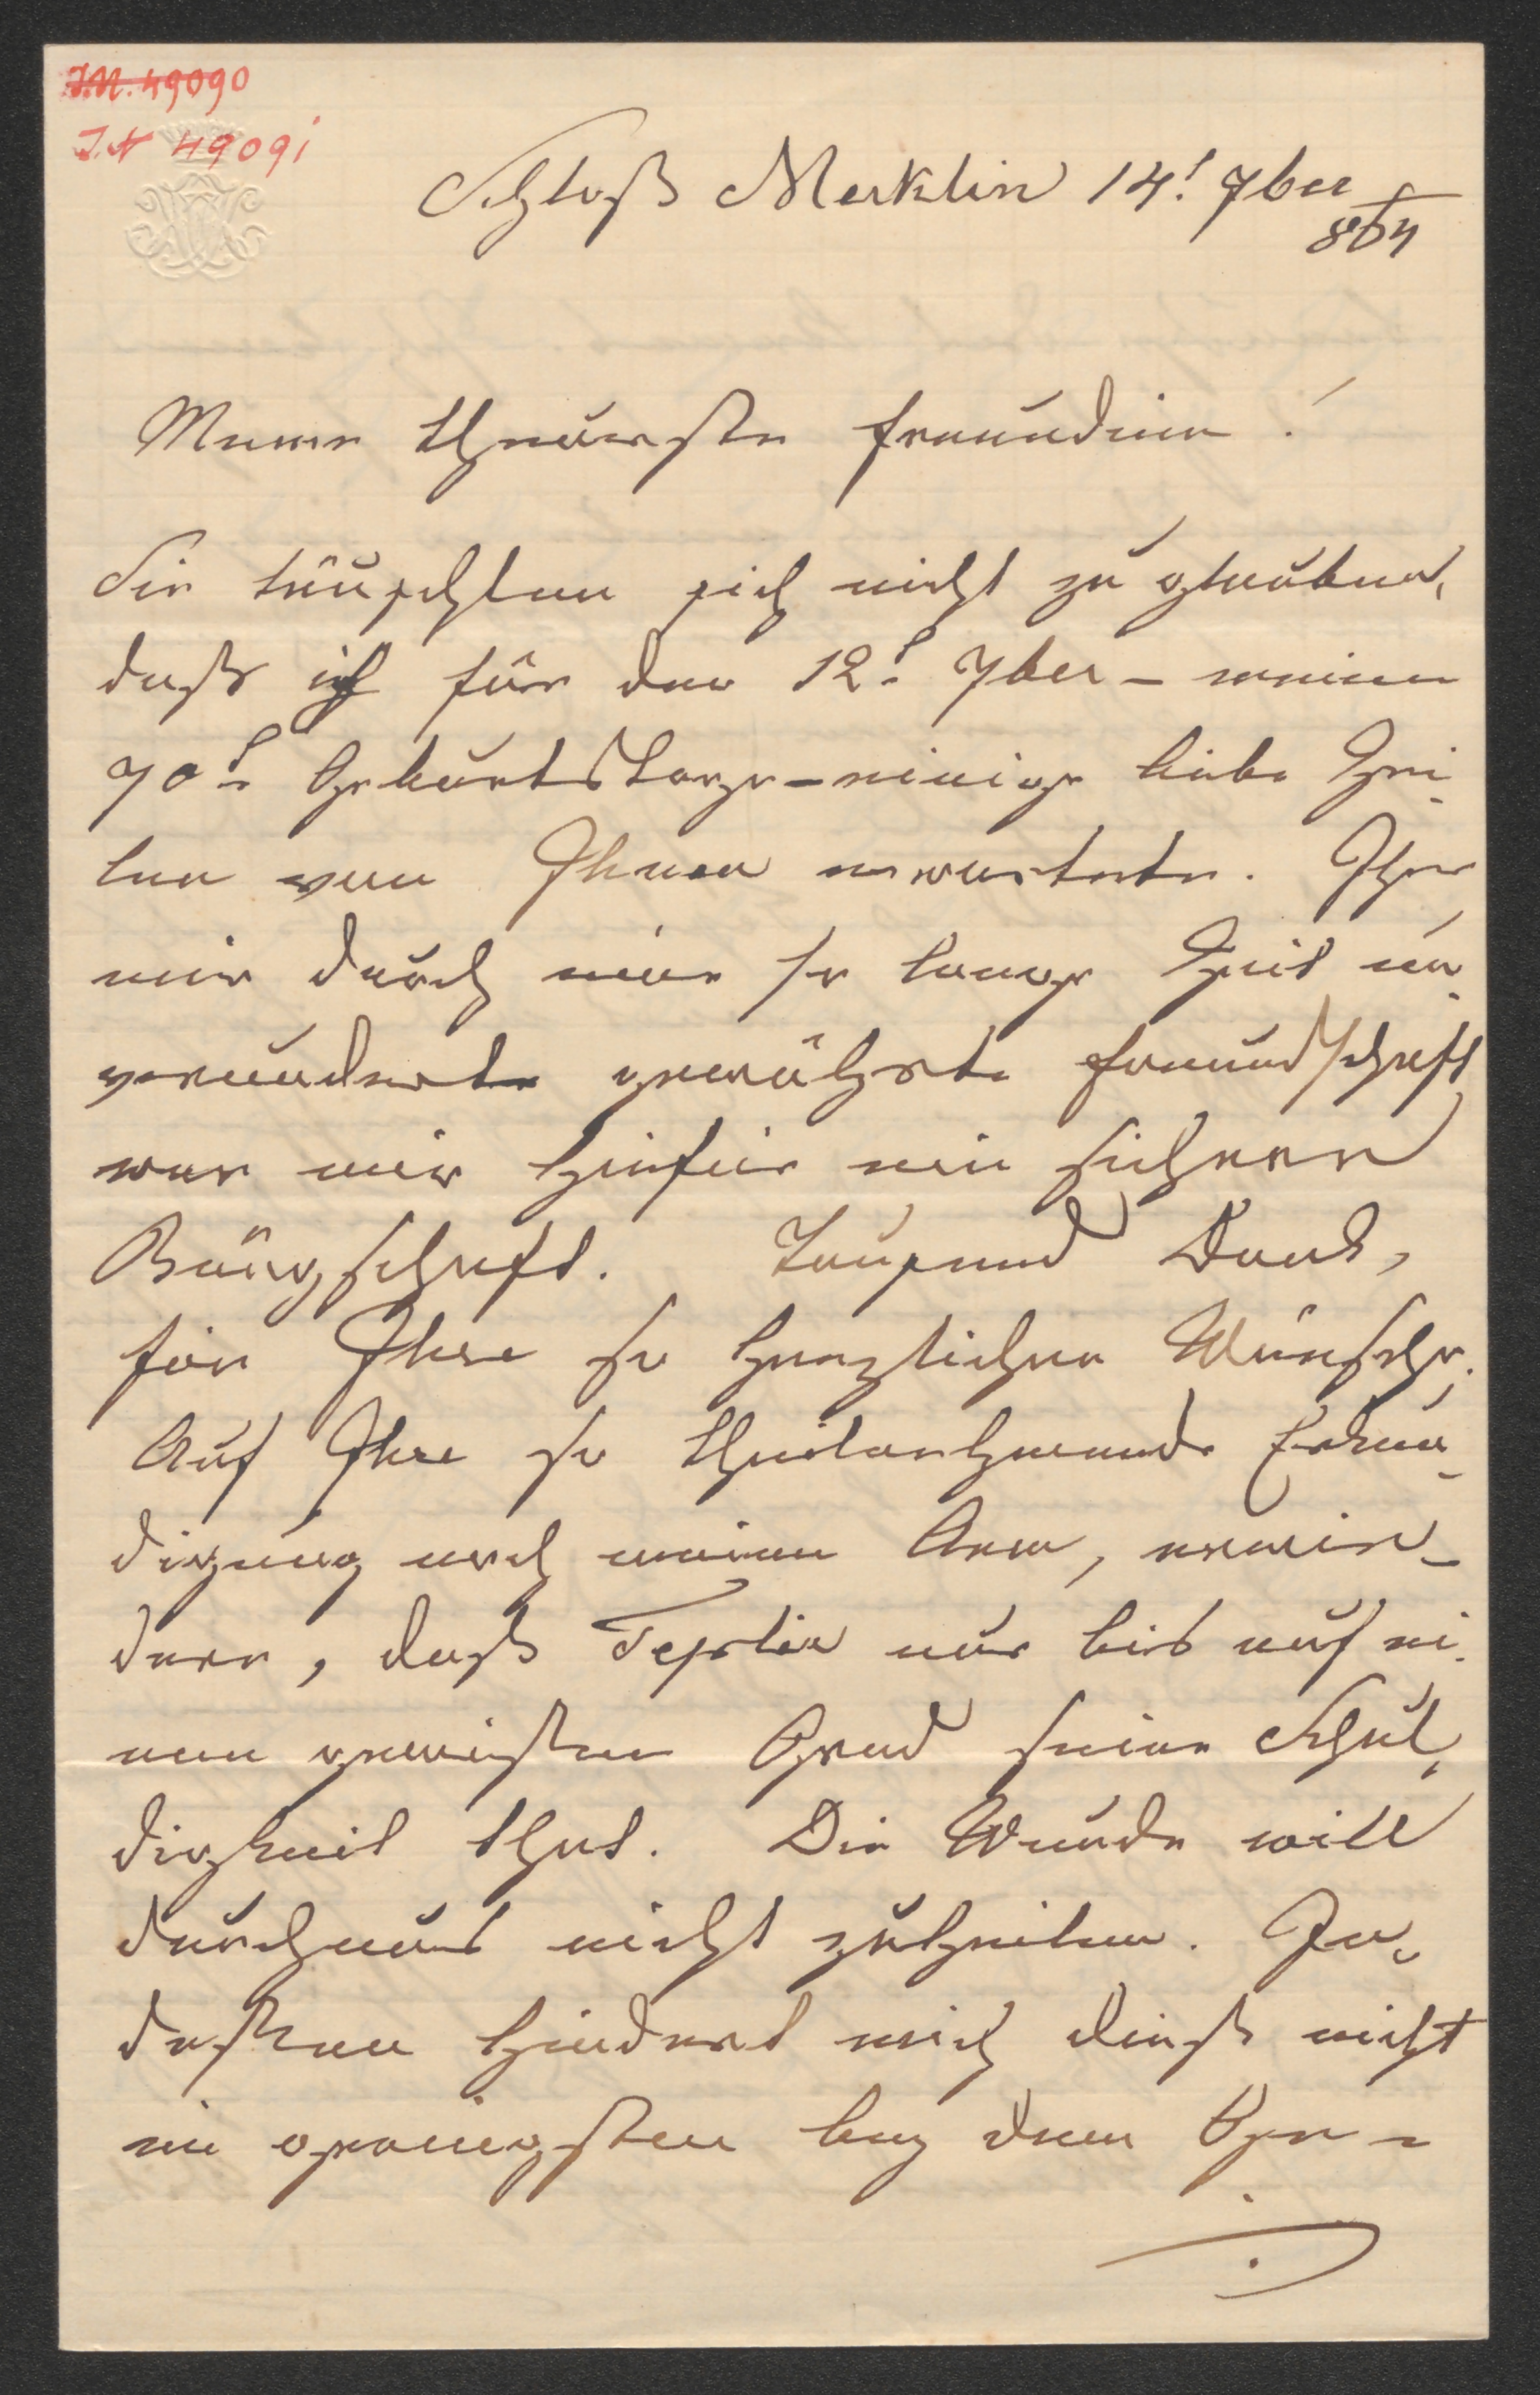 I.N. 49090
I.N 49091
Schloß Merklin 14t 7ber
864
Meine theuerste Freundinn!
Sie täuschten sich nicht zu glauben,
daß ich für den 12t 7ber – meinen
70t Geburtstage – einige liebe Zei-
len von Ihnen erwartete. Ihre
mir durch eine so lange Zeit un-
verändert gewährte Freundschaft
war mir hiefür ein sicherer
Bürgschaft. Tausend Dank,
für Ihre so herzlichen Wünsche.
Auf Ihre so theilnehmende Erkun-
digung nach meinen Arm, erwie-
dere, daß Teplitz nur bis auf ei-
nen gewissen Grad seine Schul-
digkeit that. Die Wunde will
durchaus nicht zuheilen. In-
dessen hindert mich dieß nicht
im geringsten bey dem Ge-